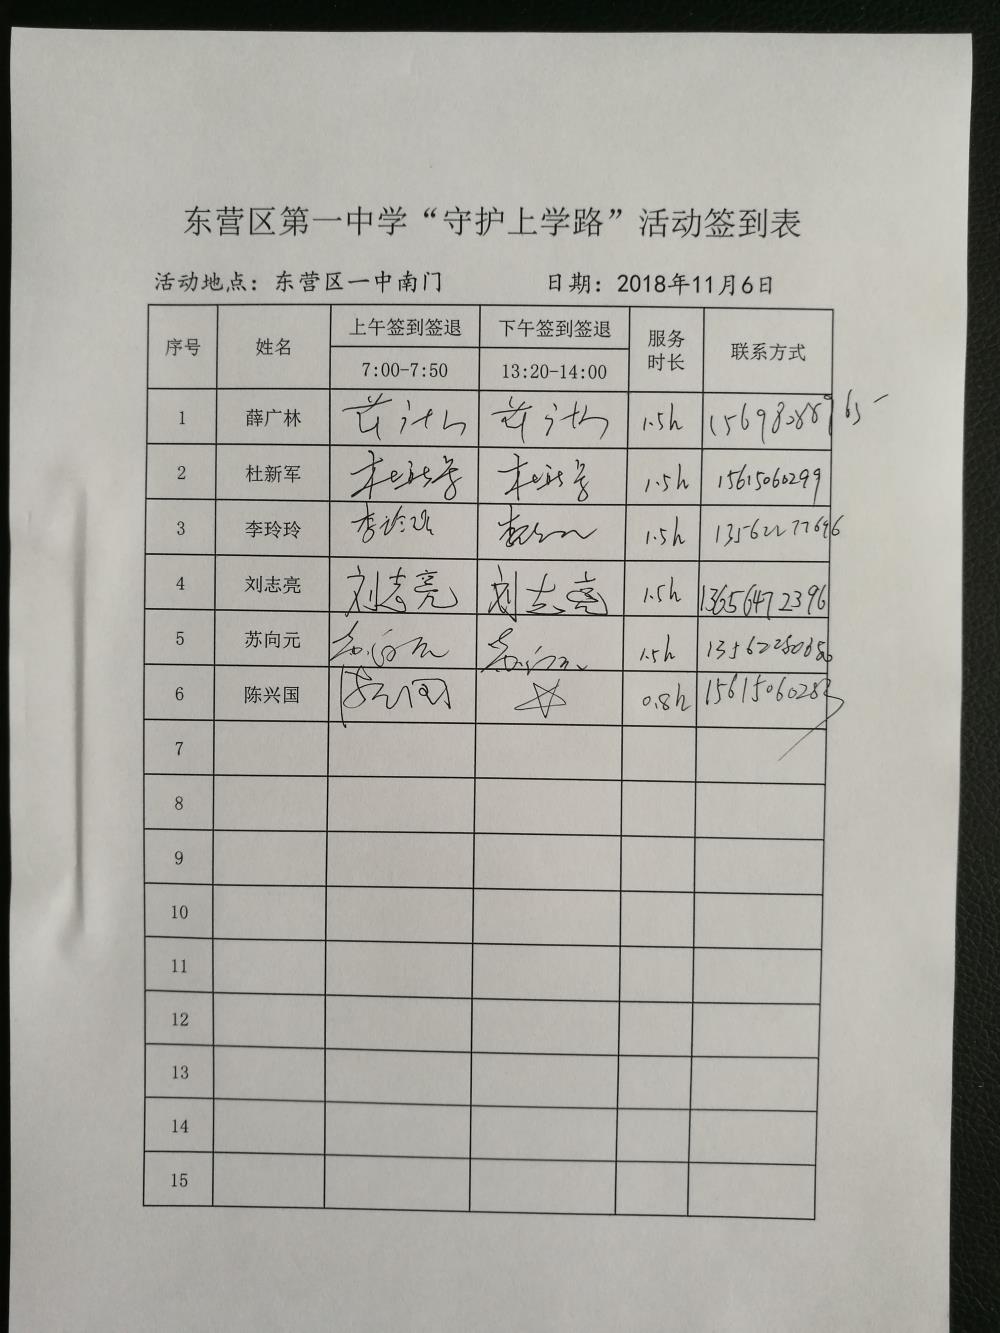 东营区第一中学“守护上学路”活动签到表
活动地点：东营区一中南门 日期：2018年11月6日
序号 姓名 上午签到签退 下午签到签退 服务时长 联系方式
7:00-7:50 13:20-14:00
1 薛广林 1.5h
2 杜新军 杜新军 杜新军 1.5h 15615060299
3 李玲玲 李玲玲 1.5h 13562277696
4 刘志亮 刘志亮 刘志亮 1.5h 13656472396
5 苏向元 苏向元 苏向元 1.5h
6 陈兴国 陈兴国 0.8h 15615060283
7
8
9
10
11
12
13
14
15